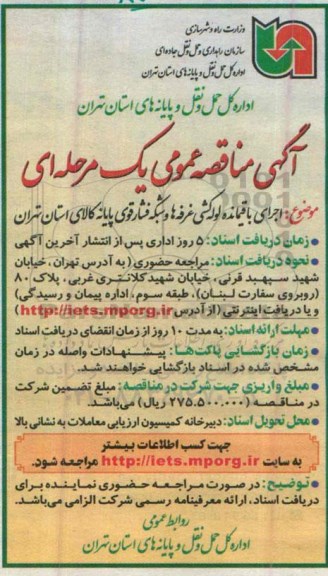 وزارت راه و شهرسازی
سازمان راهداری و حمل و نقل جاده ای
اداره کل حمل و نقل و پایانه های استان تهران
اداره کل حمل و نقل و پایانه های استان تهران
آگهی مناقصه عمومی یک مرحله ای
موضوع: اجرای باقیمانده لوله کشی غرفه ها و شبکه فشار قوی پایانه کالای استان تهران
• زمان دریافت اسناد: ۵ روز اداری پس از انتشار آخرین آگهی
نحوه دریافت اسناد: مراجعه حضوری (به آدرس تهران، خیابان
شهید سپهبد قرنی، خیابان شهید کلانتری غربی، پلاک ۸۰
(روبروی سفارت لبنان)، طبقه سوم، اداره پیمان و رسیدگی)
و یا دریافت اینترنتی (از آدرس http://iets.mporg.ir)
• مهلت ارائه اسناد: به مدت ۱۰ روز از زمان انقضای دریافت اسناد
• زمان بازگشایی پاکت ها: پیشنهادات واصله در زمان
مشخص شده در اسناد بازگشایی خواهند شد.
• مبلغ واریزی جهت شرکت در مناقصه: مبلغ تضمین شرکت
در مناقصه (۲۷۵.۵۰۰.۰۰۰ ریال) می باشد.
• محل تحویل اسناد: دبیرخانه کمیسیون ارزیابی معاملات به نشانی بالا
جهت کسب اطلاعات بیشتر
به سایت http://iets.mporg.ir مراجعه شود.
• توضیح: در صورت مراجعه حضوری نماینده برای
دریافت اسناد، ارائه معرفینامه رسمی شرکت الزامی می باشد.
روابط عمومی
اداره کل حمل و نقل و پایانه های استان تهران